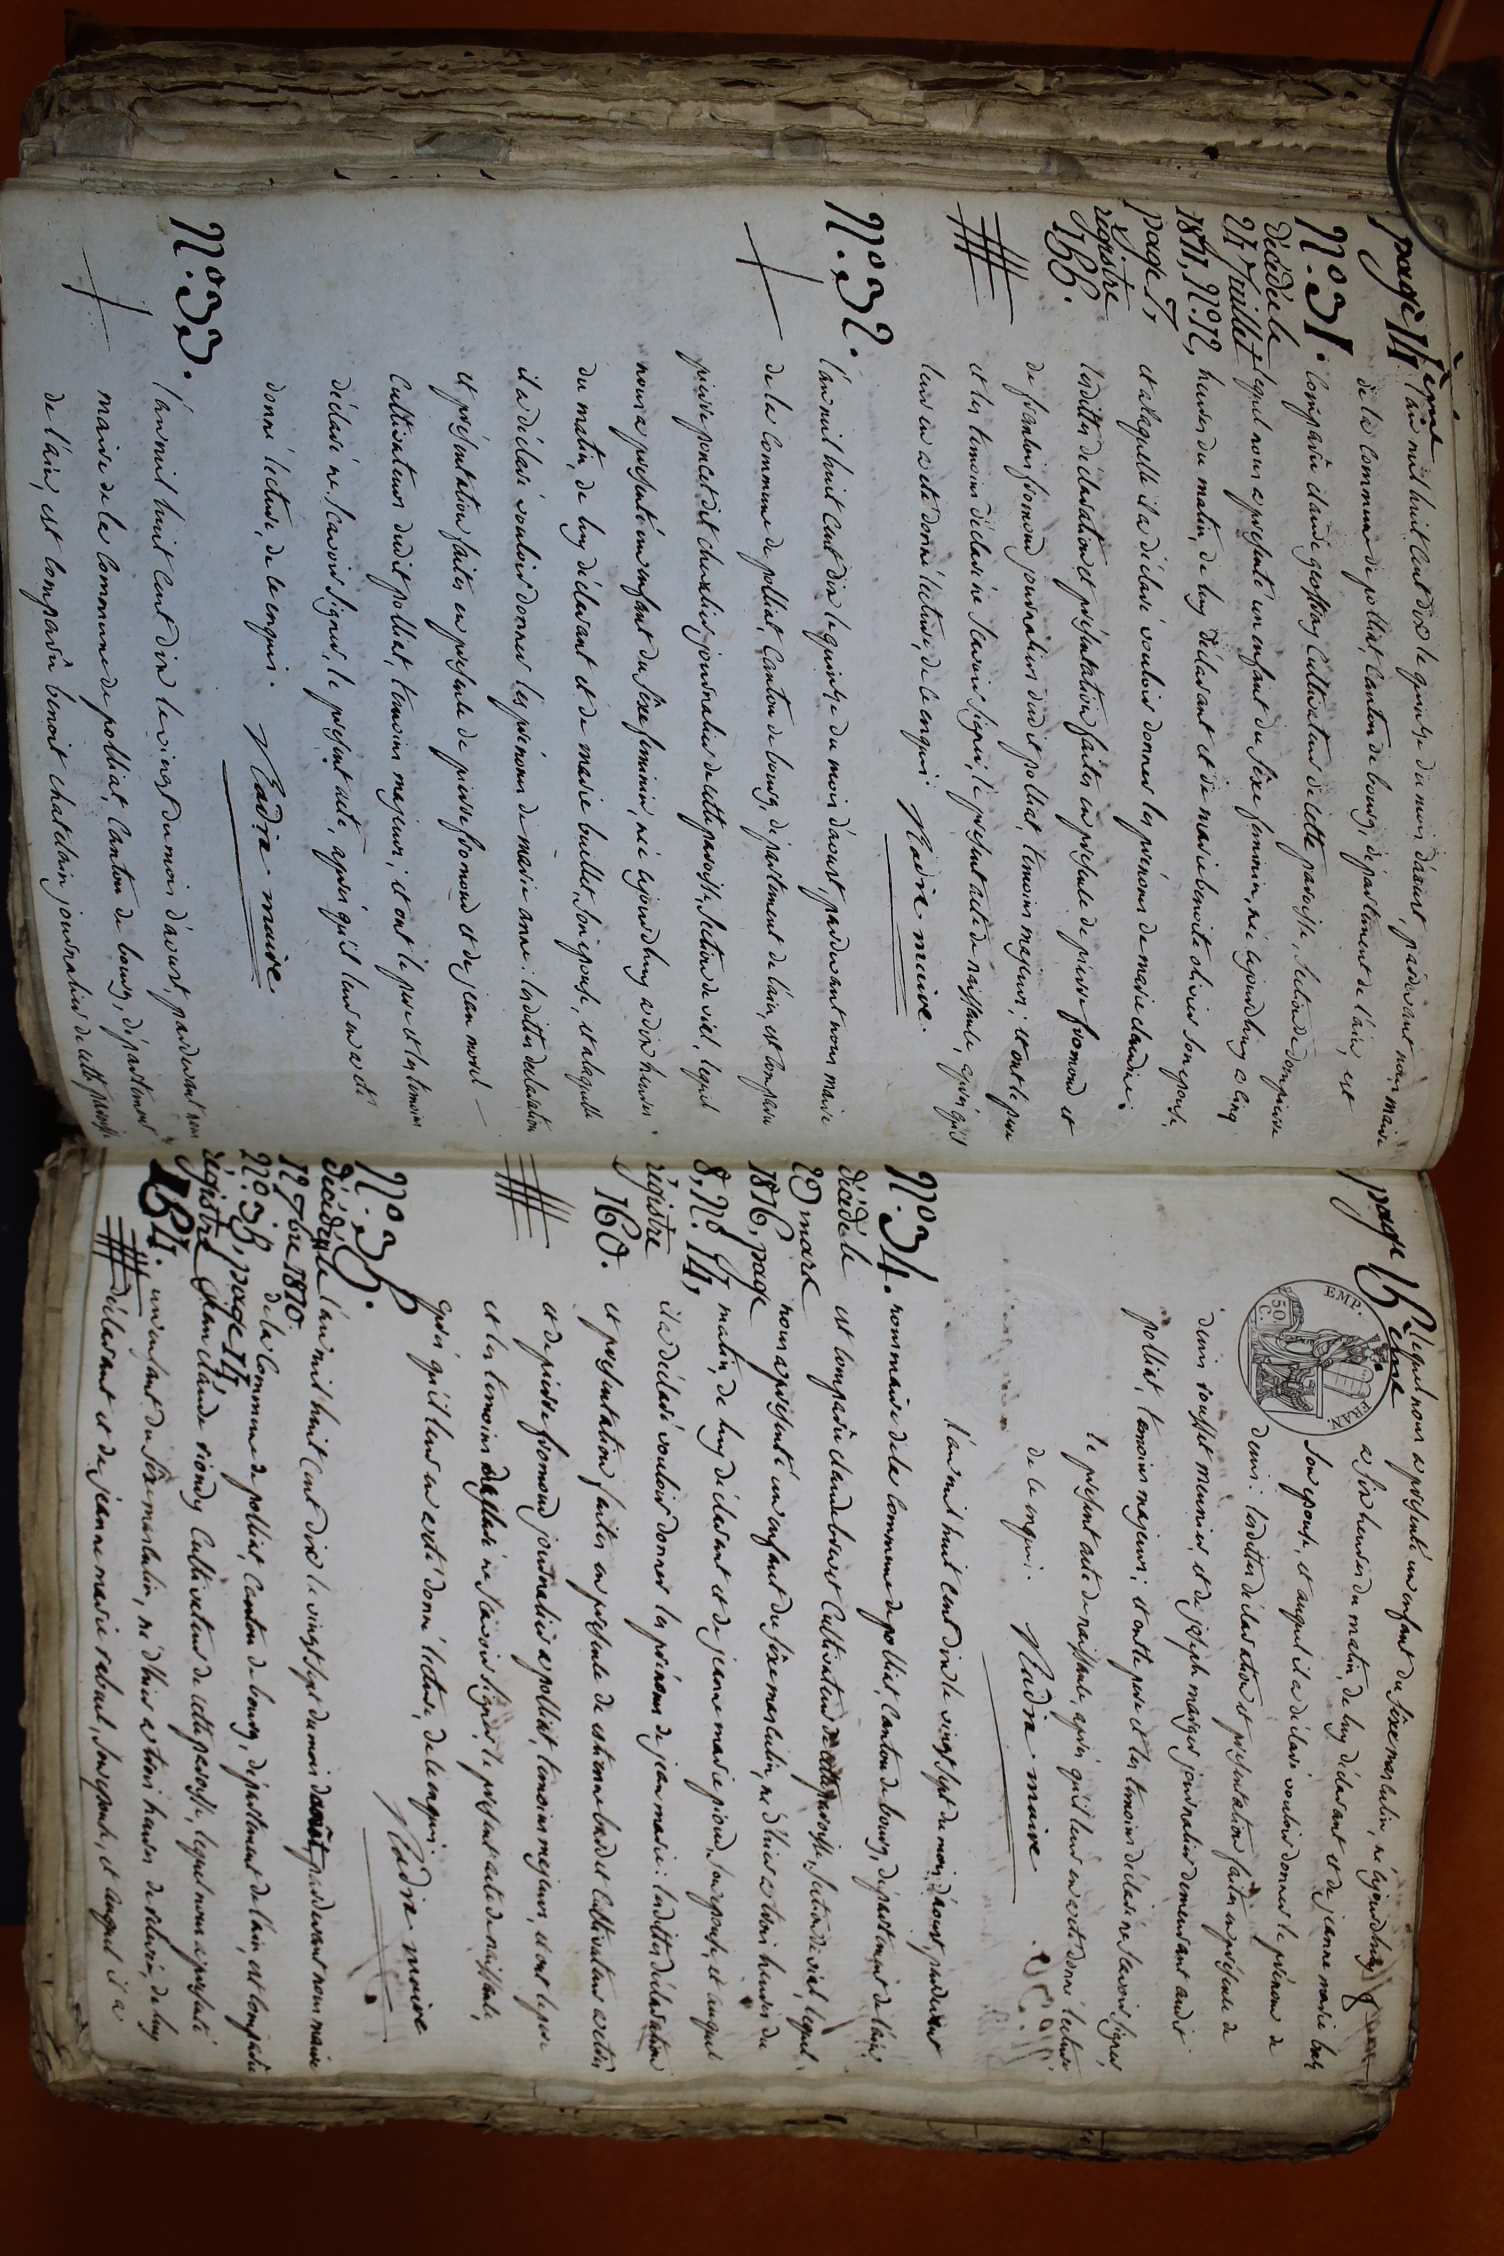 page 14ème
L'an mil huit cent dix le quinze du mois d'aoust, pardevant nous maire
de la commune de polliat, Canton de bourg, département de l'ain, est
N.º 31. Comparu claude gestray Cultivateur de cette paroisse, section de
décédé le
24 Juillet lequel nous a présenté un enfant du sèxe feminin, née cejourdhuy a cinq
1811, N.º 12, heures du matin, de luy déclarant et de marie benoite olivier son epouse,
page 7, et alaquelle il a déclaré vouloir donner les prénoms de marie claudine;
régistre lesdittes déclaration et présentation faites en présence de pierre fromond et
166. de fromond journaliers dud it polliat, temoins majeurs; et ont le pere
et les temoins déclaré ne scavoir signer, le présent acte de naissance, après qu'il
leur en a été donné lecture, de ce enquis Nadra maire.
N.º 32. L'an mil huit cent dix le quinze du mois d'aoust, pardevant nous maire
de la commune de polliat, Canton de bourg, département de l'ain, est comparu
pierre poncet dit chevalier journalier de cette paroisse, section de viel, lequel
nous a présenté un enfant du sèxe feminin, née cejourdhuy a dix heures
du matin, de luy déclarant et de marie buellet, son epouse, et alaquelle
il a déclaré vouloir donner les prénoms de marie anne: lesdittes déclaration
et présentation faites en présence de pierre fromond et de jean morel
Cultivateurs dudit polliat, temoins majeurs; et ont le pere et les temoins
déclaré ne scavoir signer, le présent acte, après qu'il leur en a été
donné lecture, de ce enquis. Nadra maire
N.º 33. L'an mil huit cent dix le vingt du mois d'aoust, pardevant nous
maire de la Commune de polliat, Canton de bourg, département
de l'ain, est comparu benoit chatelain journalier de cette paroisse
page 15ème
lequel nous a présenté un enfant du sèxe masculin, né cejourdhuy
a six heures du matin, de luy déclarant et de jeanne marie
son epouse, et auquel il a déclaré vouloir donner le prénom de
denis: lesdittes déclaration et présentation faites en présence de
denis meunier et de joseph journalier demeurant audit
polliat, temoins majeurs; et ont le pere et les temoins déclaré ne scavoir signer,
le présent acte de naissance, après qu'il leur en a été donné lecture
de ce enquis. Nadra maire
EMP. FRAN.
50 C.
L'an mil huit cent dix le vingt sept du mois d'aoust, pardevant
N.º 34. nous maire de la commune de polliat, Canton de bourg, département de l'ain,
décédé le est comparu claude Cultivateur de cette paroisse, section de viel, lequel
29 mars nous a présenté un enfant du sèxe masculin, né d'hier a trois heures du
1816, page
8, N.º 14, matin, de luy déclarant et de jeanne marie son epouse, et auquel
régistre il a déclaré vouloir donner les prénoms de jean marie: lesdittes déclaration
160. et présentation faites en présence de estienne Cultivateur
et de pierre fromond journalier a polliat, temoins majeurs, et ont le pere
et les temoins déclaré ne scavoir signer, le présent acte de naissance,
après qu'il leur en a été donné lecture, de ce enquis
Nadra maire
N.º 35.
décédé le L'an mil huit cent dix le vingt sept du mois d'août, pardevant nous maire
12 9bre 1810.
N.º 36, page 14, de la Commune de polliat, Canton de bourg, département de l'ain, est comparu
régistre jean claude Cultivateur de cette paroisse, lequel nous a présenté
164. un enfant du sèxe masculin, né d'hier a trois heures de relevée, de luy
déclarant et de jeanne marie rabuel, son epouse, et auquel il a